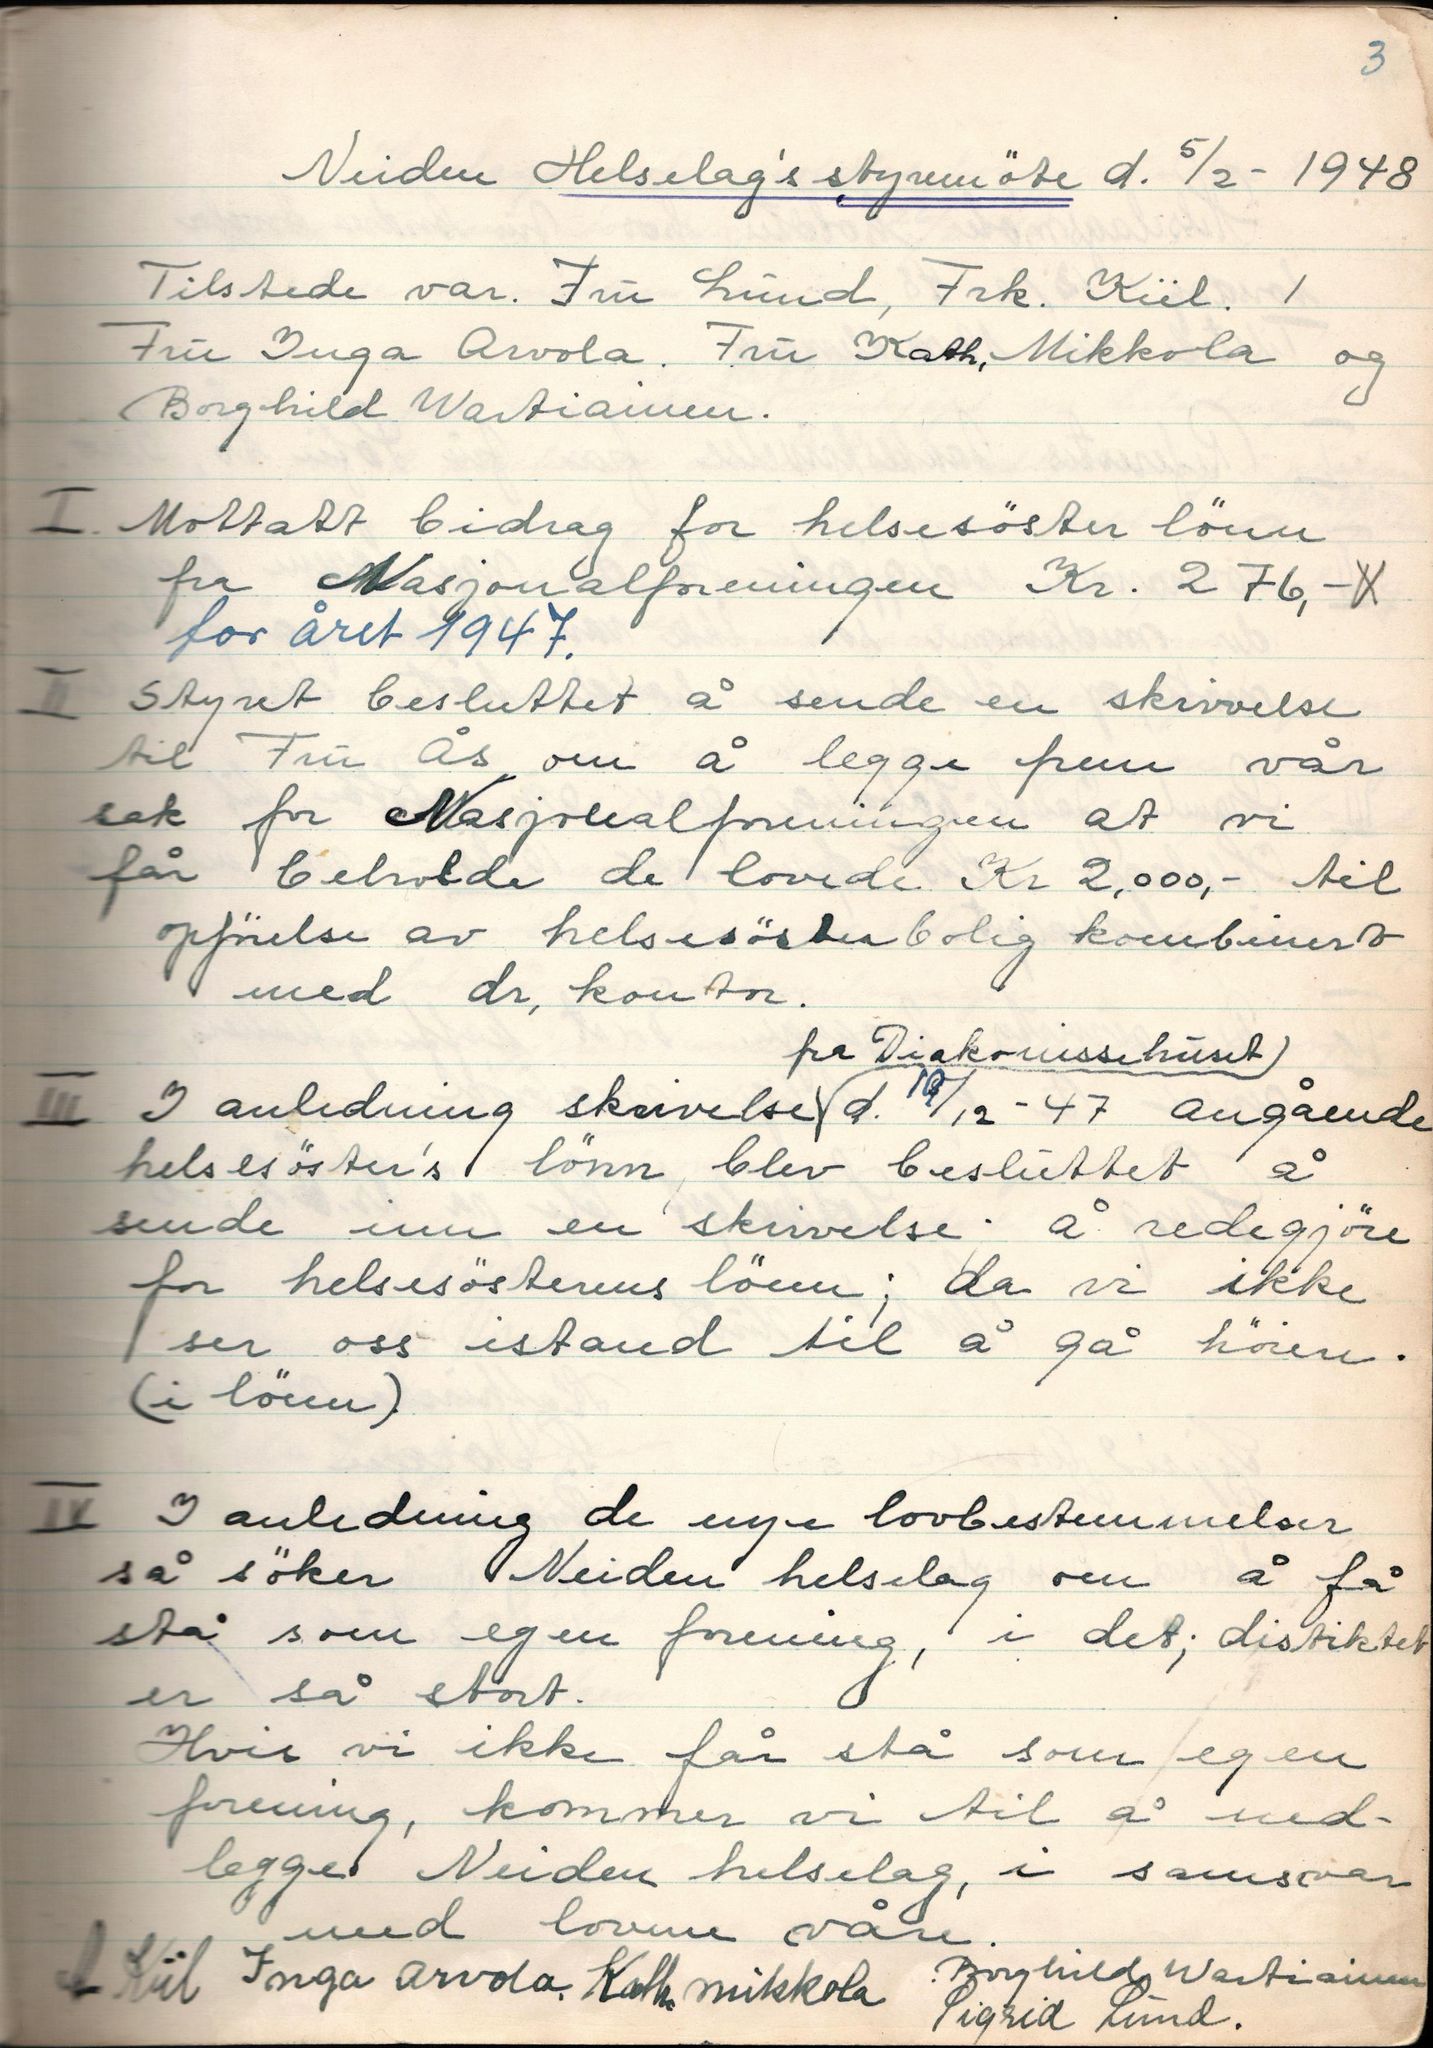 3
Neiden Helselag's styremöte d. 5/2 - 1948
Tilstede var. Fru Lund, Frk. Kiil. /
Fru Inga Arvola. Fru Kath, Mikkola og
Borghild Wartiainen.
I. Mottatt bidrag for helsesöster lönn
fra Nasjonalforeningen Kr. 276,- X
for året 1947.
II Styret besluttet å sende en skrivvelse
til Fru Ås om å legge frem vår
sak for Nasjonalforeningen at vi
får beholde de lovede Kr 2,000,- til
opförelse av helsesösterbolig kombinert
med dr, kontor.
fra Diakonissehuset)
III I anledning skrivelse d. /12 - 47 angående
helsesöster's lönn, blev besluttet å
sende inn en skrivelse. å redegjöre
for helsesösterens lönn; da vi ikke
ser oss istand til å gå höiere.
(i lönn)
IV I anledning de nye lovbestemmelser
så söker Neiden helselag om å få
stå som egen forening, i det; distiktet
er så stort.
Hvis vi ikke får stå som egen
forening, kommer vi til å ned-
legge Neiden helselag, i samsvar
med lovene våre.
Kiil Inga Arvola. Kath mikkola Borghild Wartiainen
Sigrid Lund.